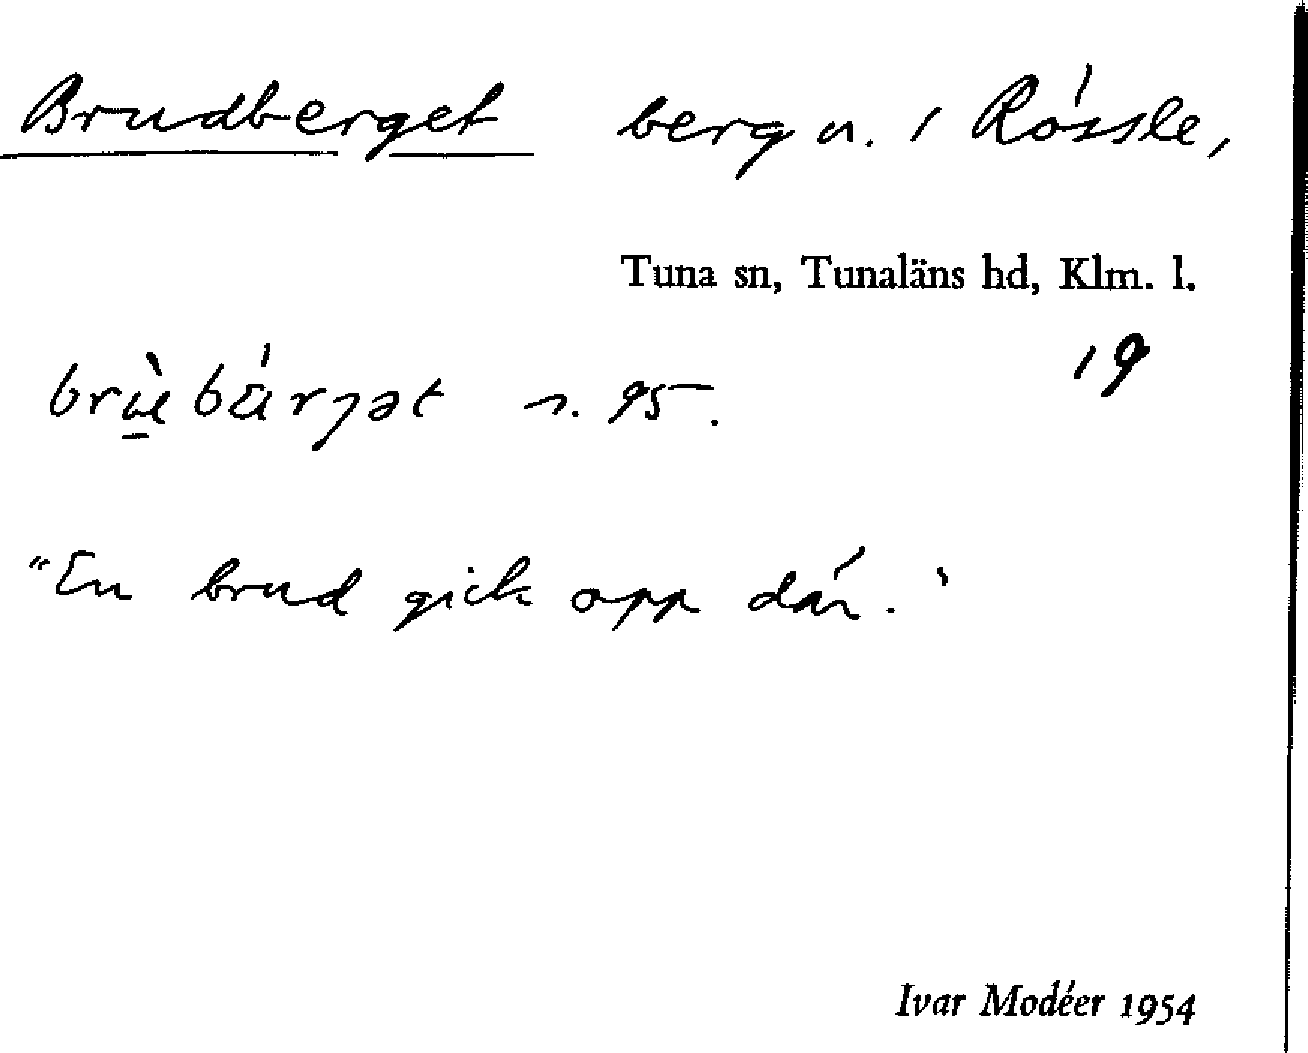 Brudberget berg n. i Rössle,
Tuna sn, Tunaläns hd, Klm. l.
19
n. 95.
"En brud gick opp där."
Ivar Modéer 1954